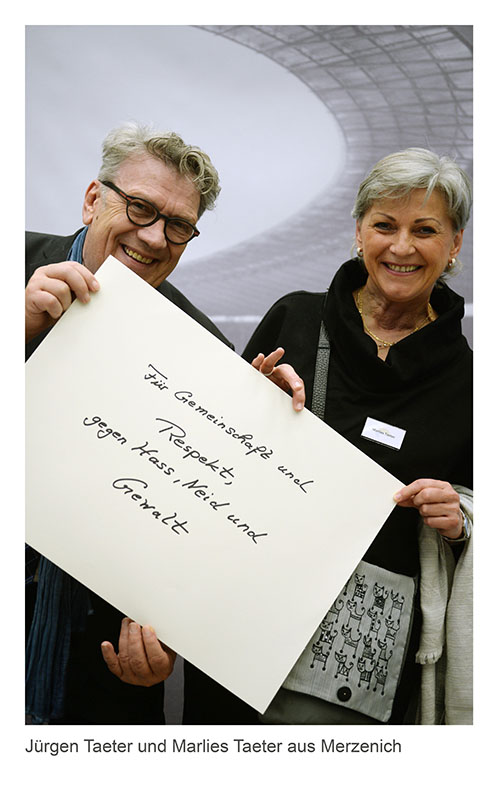 Für Gemeinschaft und
Respekt,
gegen Hass, Neid und
Gewalt
Marlies Taeter
Jürgen Taeter und Marlies Taeter aus Merzenich